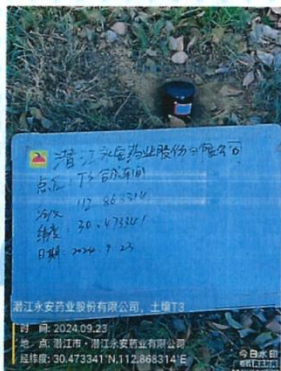 潜江永安药业股份有限公司
点位: T3 合成车间
112.868314
纬度: 30.473341
日期: 2024.9.23
潜江永安药业股份有限公司，土壤T3
时 间: 2024.09.23
地 点: 潜江市·潜江永安药业有限公司
经纬度: 30.473341°N,112.868314°E
今日水印